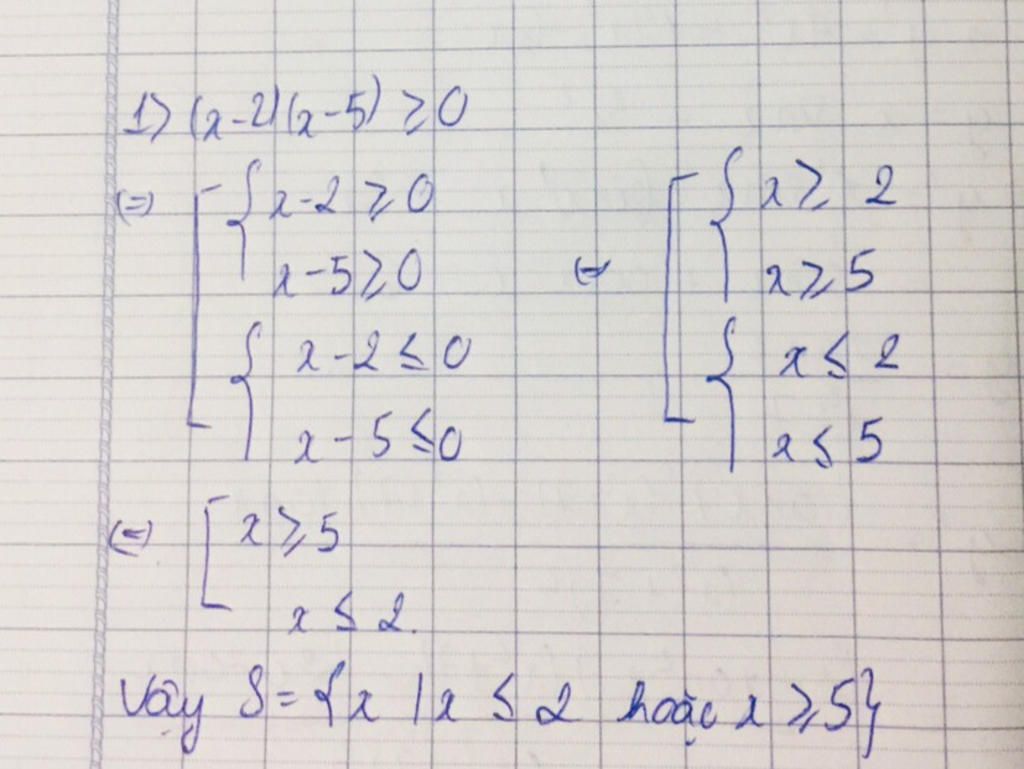 1> (x-2)(x-5) ≥ 0
(=) [ { x-2 ≥ 0
x-5 ≥ 0
{ x-2 ≤ 0
x-5 ≤ 0
(=) [ { x ≥ 2
x ≥ 5
{ x ≤ 2
x ≤ 5
(=) [ x ≥ 5
x ≤ 2.
Vậy S = {x | x ≤ 2 hoặc x ≥ 5}